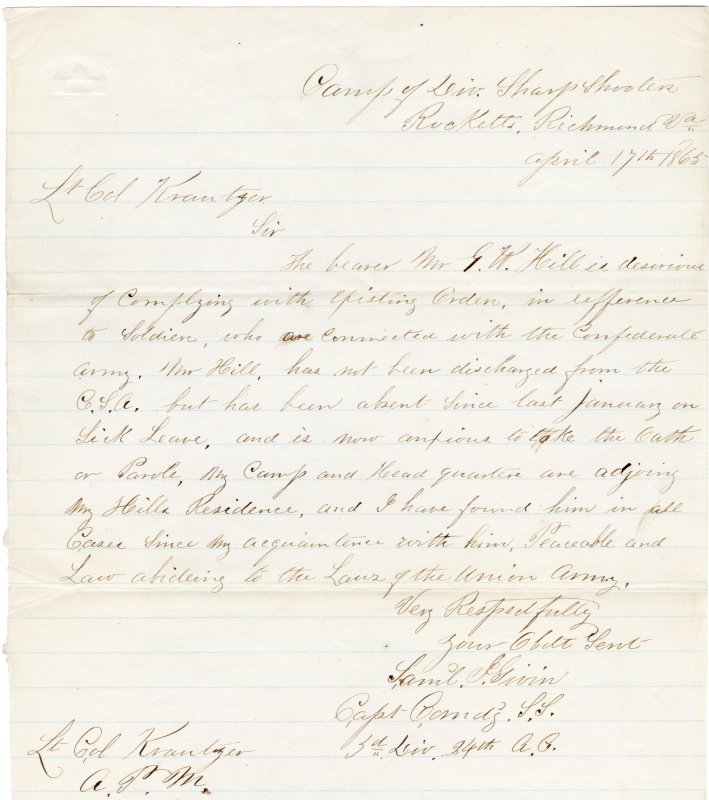 Camp of Div. Sharp Shooters
Rocketts, Richmond Va
April 17th 1865
Lt Col Krautzer
Sir
The bearer Mr G. W. Hill is desirious
of Complying with Existing Orders, in refference
to Soldiers, who are Connected with the Confederate
Army. Mr Hill, has not been discharged from the
C.S.A. but has been absent Since last January on
Sick Leave, and is now anxious to take the Oath
or Parole, My Camp and Head quarters are adjoing
Mr Hills Residence, and I have found him in all
Cases Since My acquaintence with him, Peaceable and
Law abideing to the Laws of the Union Army.
Very Respectfully
Your Obdt Servt
Saml. J. Givin
Capt Comdg. S.S.
3d Div. 24th A.C.
Lt Col Krautzer
A. P. M.